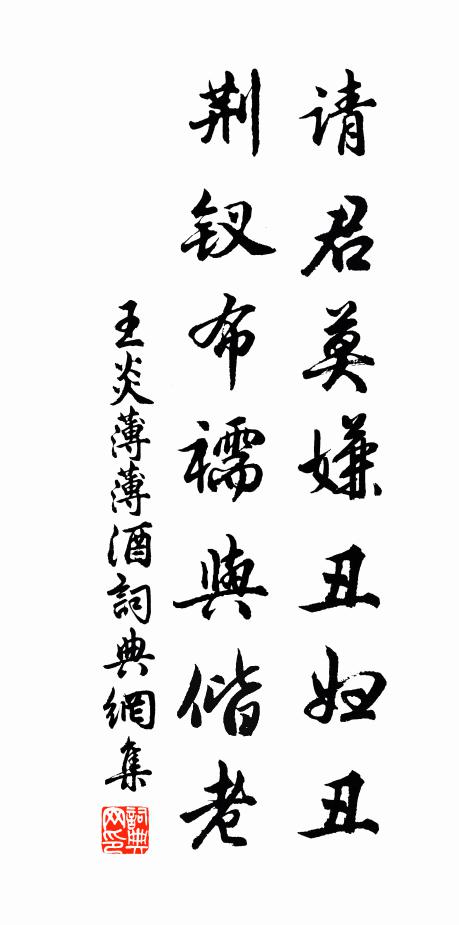 请君莫嫌丑妇丑
荆钗布襦與偕老
王炎薄薄酒詞典網集
詞典网印